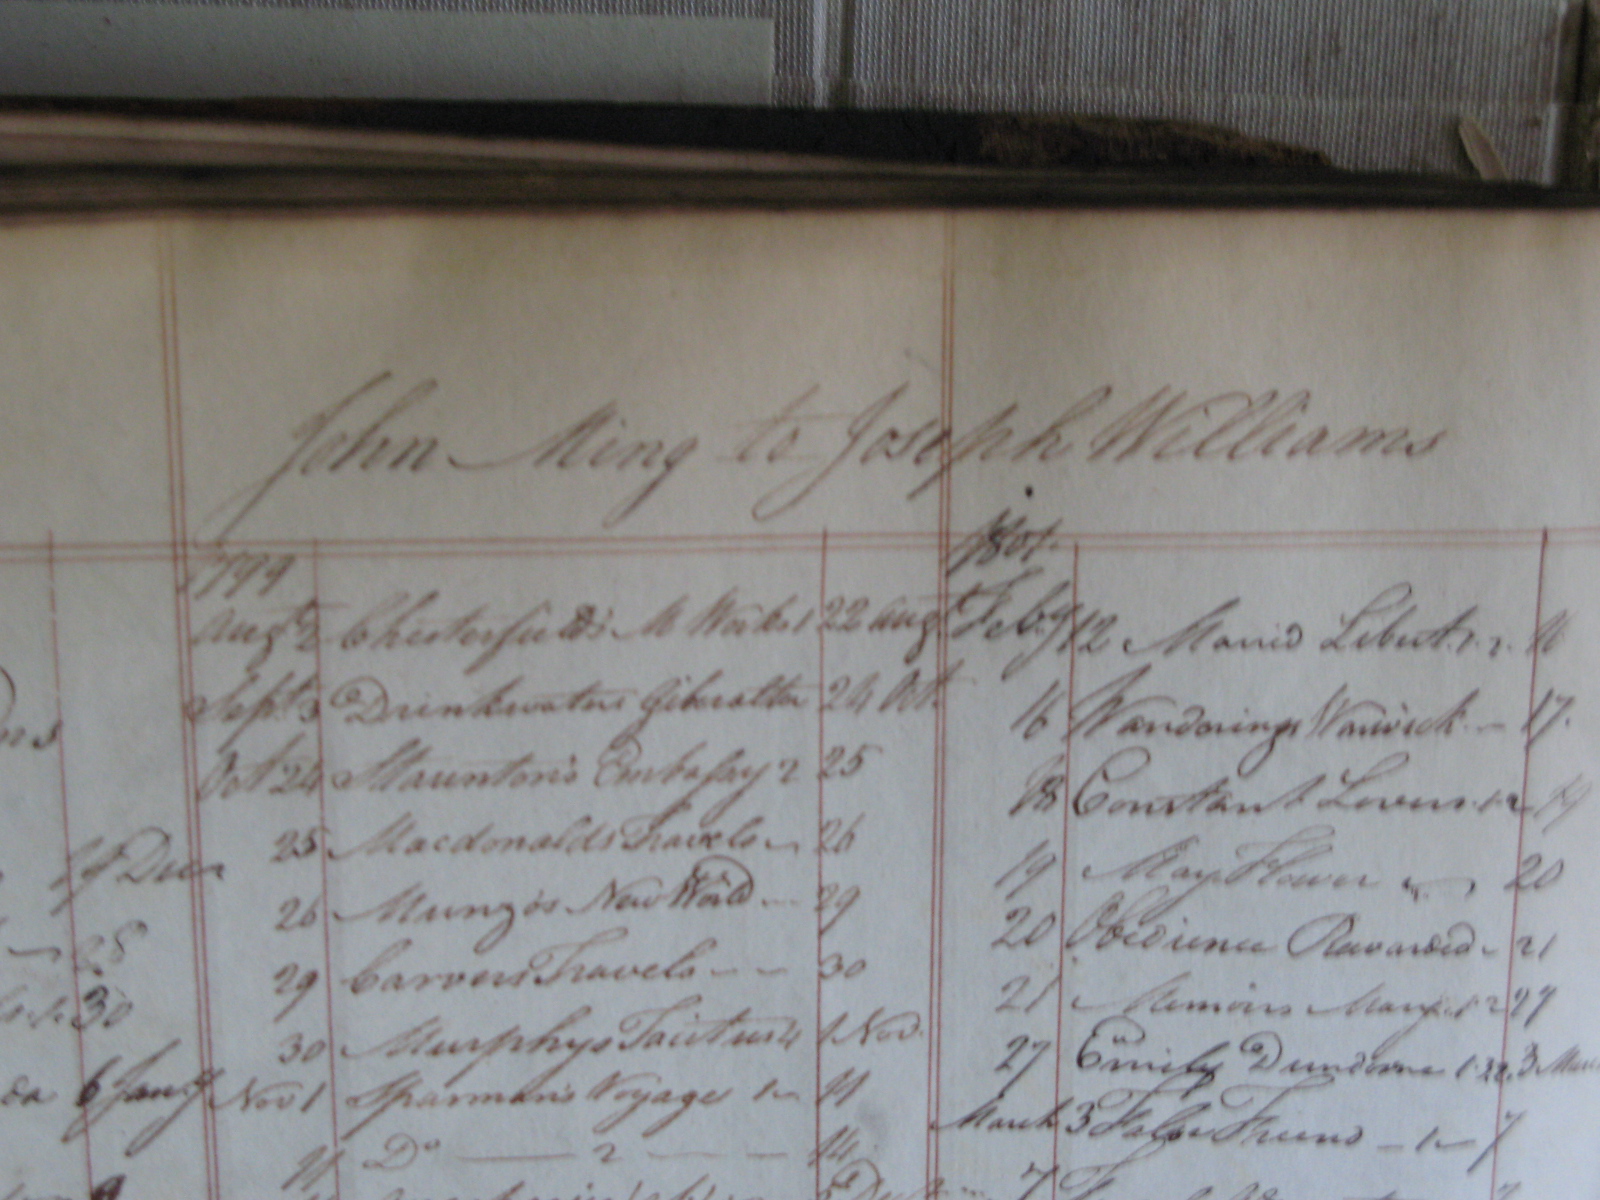 John Ming to Joseph Williams
1799
Augt 2 Chesterfields M Works 1 22 Augt
Sept 3 Drinkwaters Gibralter 24 Oct
Oct 24 Stauntons Embassy 2 25
25 Macdonalds Travels 26
26 Munzos New World 29
29 Carvers Travels 30
30 Murphys Tacitus 4 1 Nov
Nov 1 Sparmans Voyage 1 11
11 Do 2 14
1801
Feby 12 Maried Libert. 1. 2. 16
16 Wanderings Warwick 17.
18 Constant Lovers 1. 2 19
19 May Flower 20
20 Obedience Rewarded 21
21 Memoirs Mary 1. 2 27
27 Emily Dundorne 1. 22. 3
March 3 False Friend 1 7
7
19 Decr
28
30
6 Jany